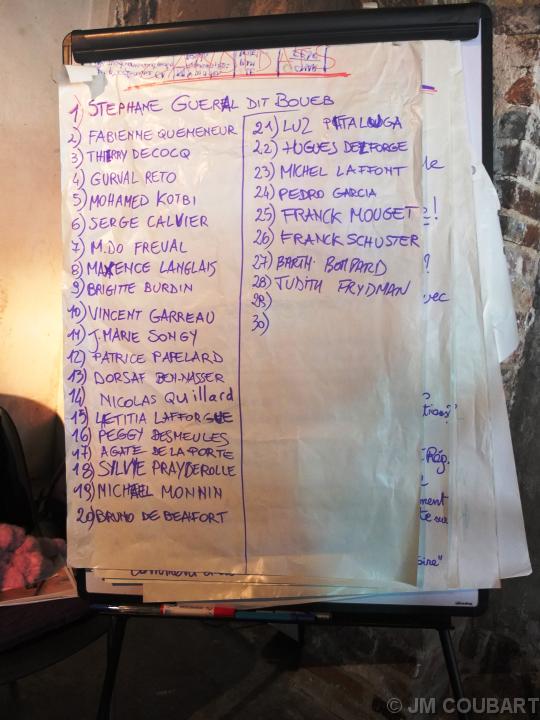 1) STEPHANE GUERAL DIT BOUEB
2) FABIENNE QUEMENEUR
3) THIERRY DECOCQ
4) GURVAL RETO
5) MOHAMED KOTBI
6) SERGE CALVIER
7) M.DO FREVAL
8) MAXENCE LANGLAIS
9) BRIGITTE BURDIN
10) VINCENT GARREAU
11) J.MARIE SONGY
12) PATRICE PAPELARD
13) DORSAF BEN-NASSER
14) NICOLAS QUillard
15) LAETITIA LAFFORGUE
16) PEGGY DESMEULES
17) AGATE DE LA PORTE
18) SYLVIE PRAYDEROLLE
19) MICHAEL MONNIN
20) BRUNO DE BEAUFORT
21) LUZ PATALOUGA
22) HUGUES DELFORGE
23) MICHEL LAFFONT
24) PEDRO GARCIA
25) FRANCK MOUGET
26) FRANCK SCHUSTER
27) BARTH. BOMPARD
28) JUDITH FRYDMAN
29)
30)
© JM COUBART